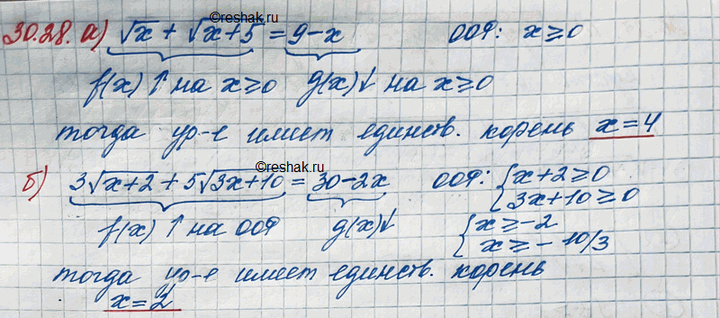 ©reshak.ru
30.28. а) √x + √x+5 = 9-x ООФ: x≥0
f(x) ↑ на x≥0 g(x)↓ на x≥0
тогда ур-е имеет единств. корень x=4
©reshak.ru
б) 3√x+2 + 5√3x+10 = 30-2x ООФ: { x+2≥0
3x+10≥0
f(x) ↑ на ООФ g(x)↓ { x≥-2
x≥-10/3
тогда ур-е имеет единств. корень
x=2